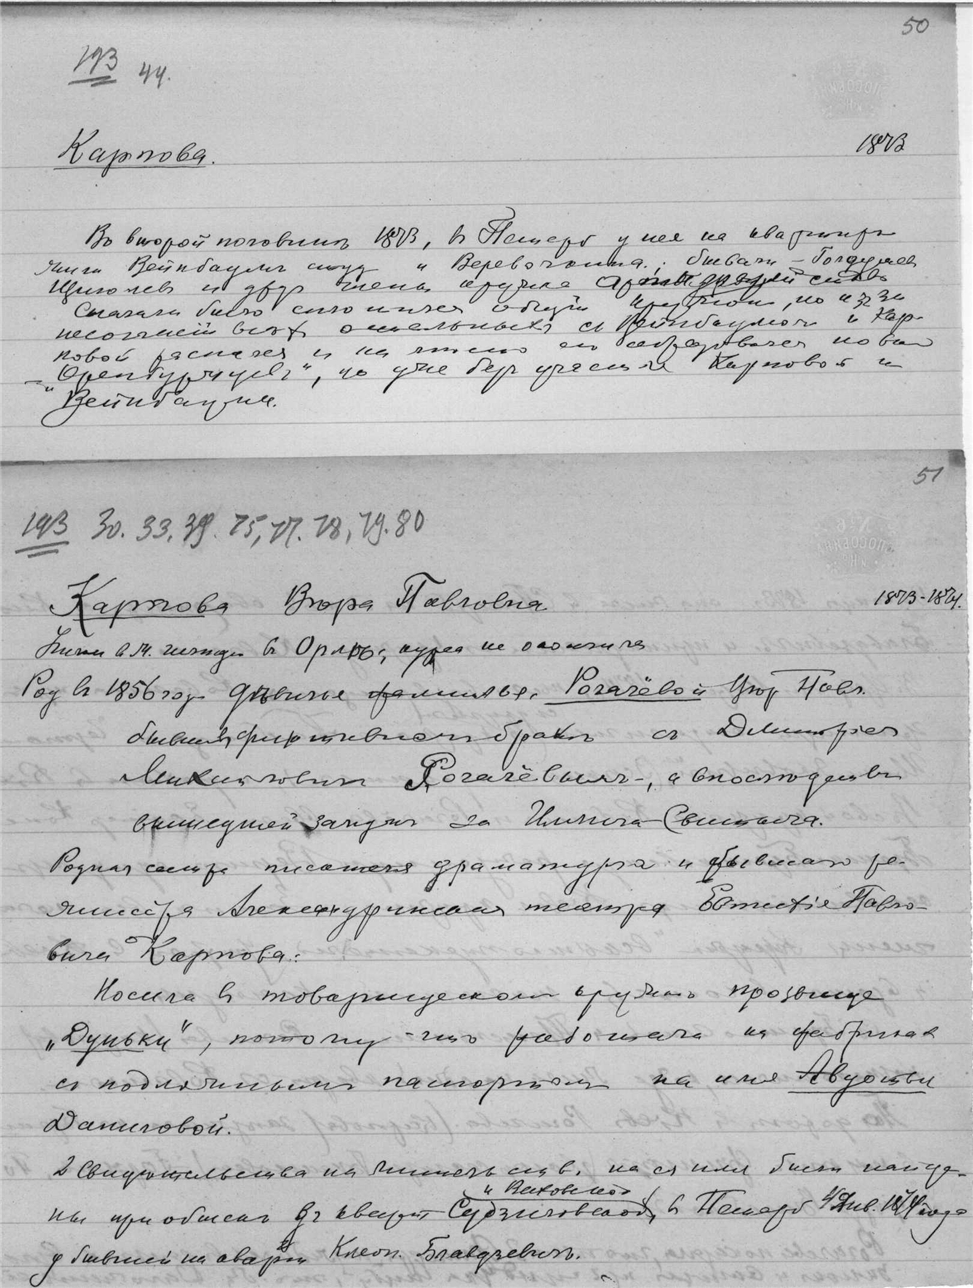 50
193 44.
Карпова. 1873
Въ второй половинѣ 1873, в Петерб у нея на квартирѣ
жили Вейнбаумъ студ и Веревочкина; бывали
Щиголев и два члена кружка
Сначала было сложился общій кружок, но из за
несогласій всѣх остальныхъ съ Вейнбаумом и Кар-
повой распался и на место его образовался новый
— "Оренбуржцев", но уже без участія Карповой и
Вейнбаума.
51
193 30. 33. 39. 75, 77. 78, 79. 80
Карпова Вѣра Павловна 1873-1874.
в Орлѣ, курса не окончила
Род в 1856 год. дѣвичья фамилія. Рогачёвой Вѣр Павл.
бывшей фиктивном бракѣ съ Дмитріем
Михайловичем Рогачёвымъ, а впоследствіи
вышедшей замуж за Ильича Свитыча.
Родная сестра писателя драматурга и бывшаго ре-
жиссёра Александринскаго театра Евтихія Павло-
вича Карпова.
Носила в товарищеском кружкѣ прозвище
„Дуньки", потому что работала на фабриках
съ подложным паспортом на имя Авдотьи
Даниловой.
2 Свидѣтельства на жительство на ея имя были найде-
и Вахов
ны при обыске в кварт Судзиловской, в Петерб 4 Янв. 1874 года
у бывшей на кварт Клеоп. Блавдзевичъ.